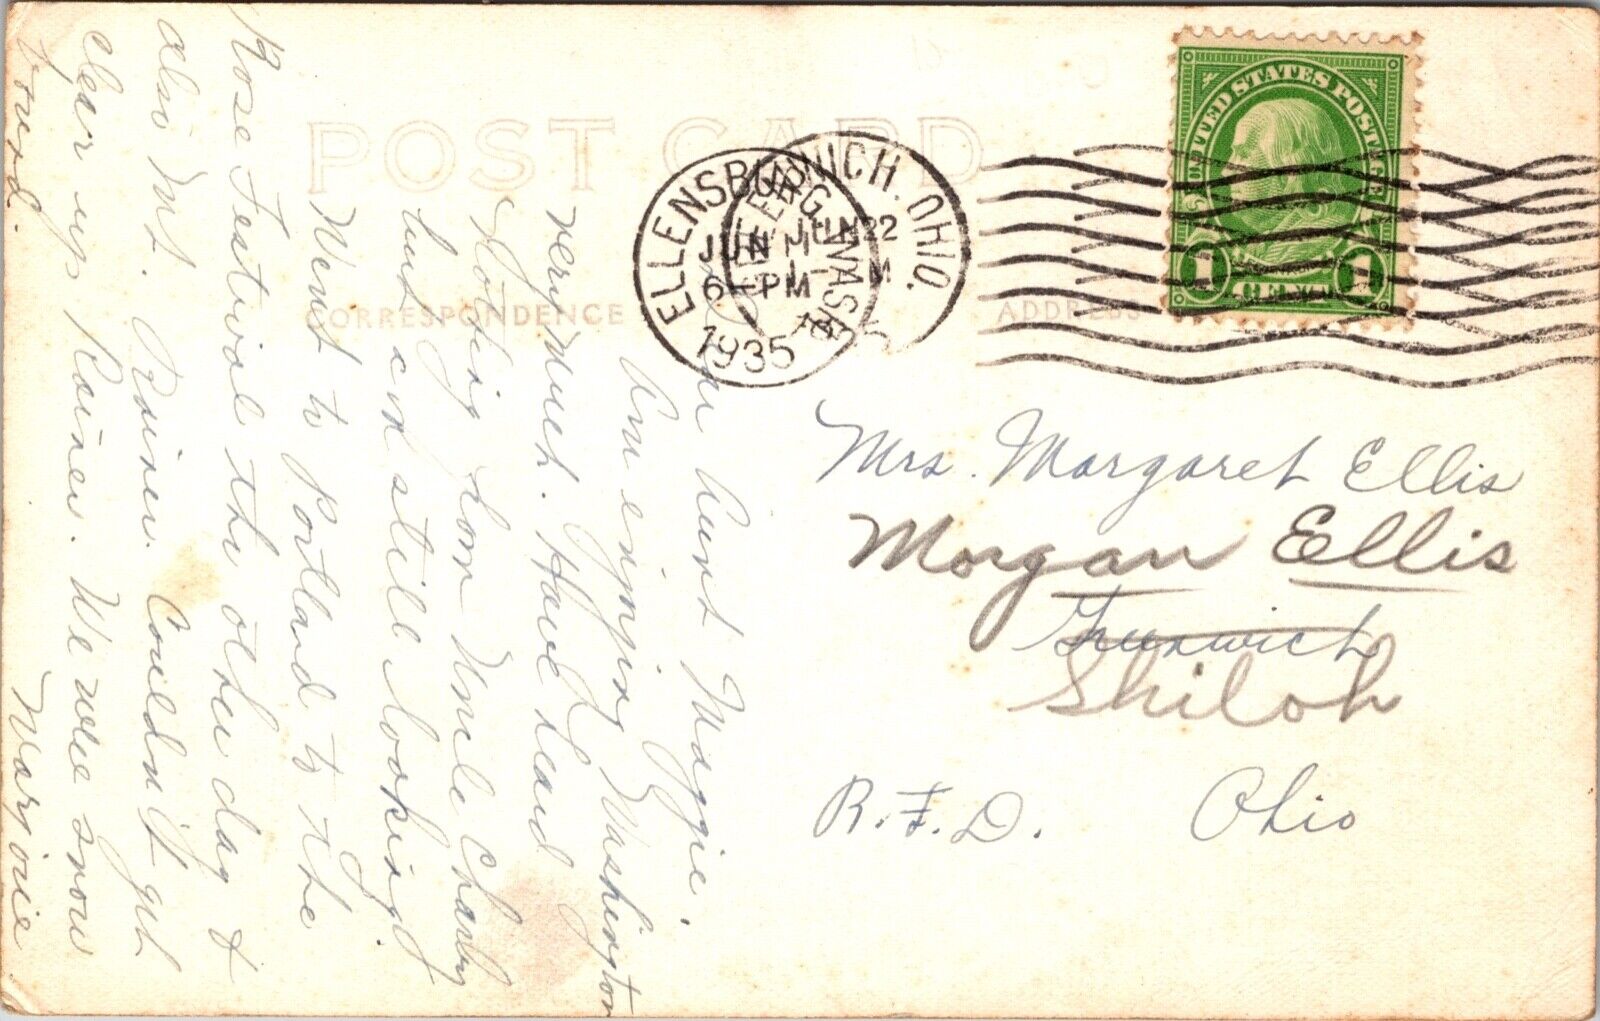 POST CARD
CORRESPONDENCE
ADDRESS
UNITED STATES POSTAGE
1 CENT 1
ELLENSBURG WASH.
JUN 11
6-PM
1935
WICH. OHIO.
JUN 22
M
Dear Aunt Maggie.
Am enjoying Washington
very much. Have heard
nothing from Uncle Charley
but am still looking
Went to Portland to the
Rose Festival the other day &
also Mt. Rainer. Couldn't get
clear up Rainer. We were snow
bound.
Marjorie
Mrs. Margaret Ellis
Morgan Ellis
Greenwich
Shiloh
R.F.D. Ohio